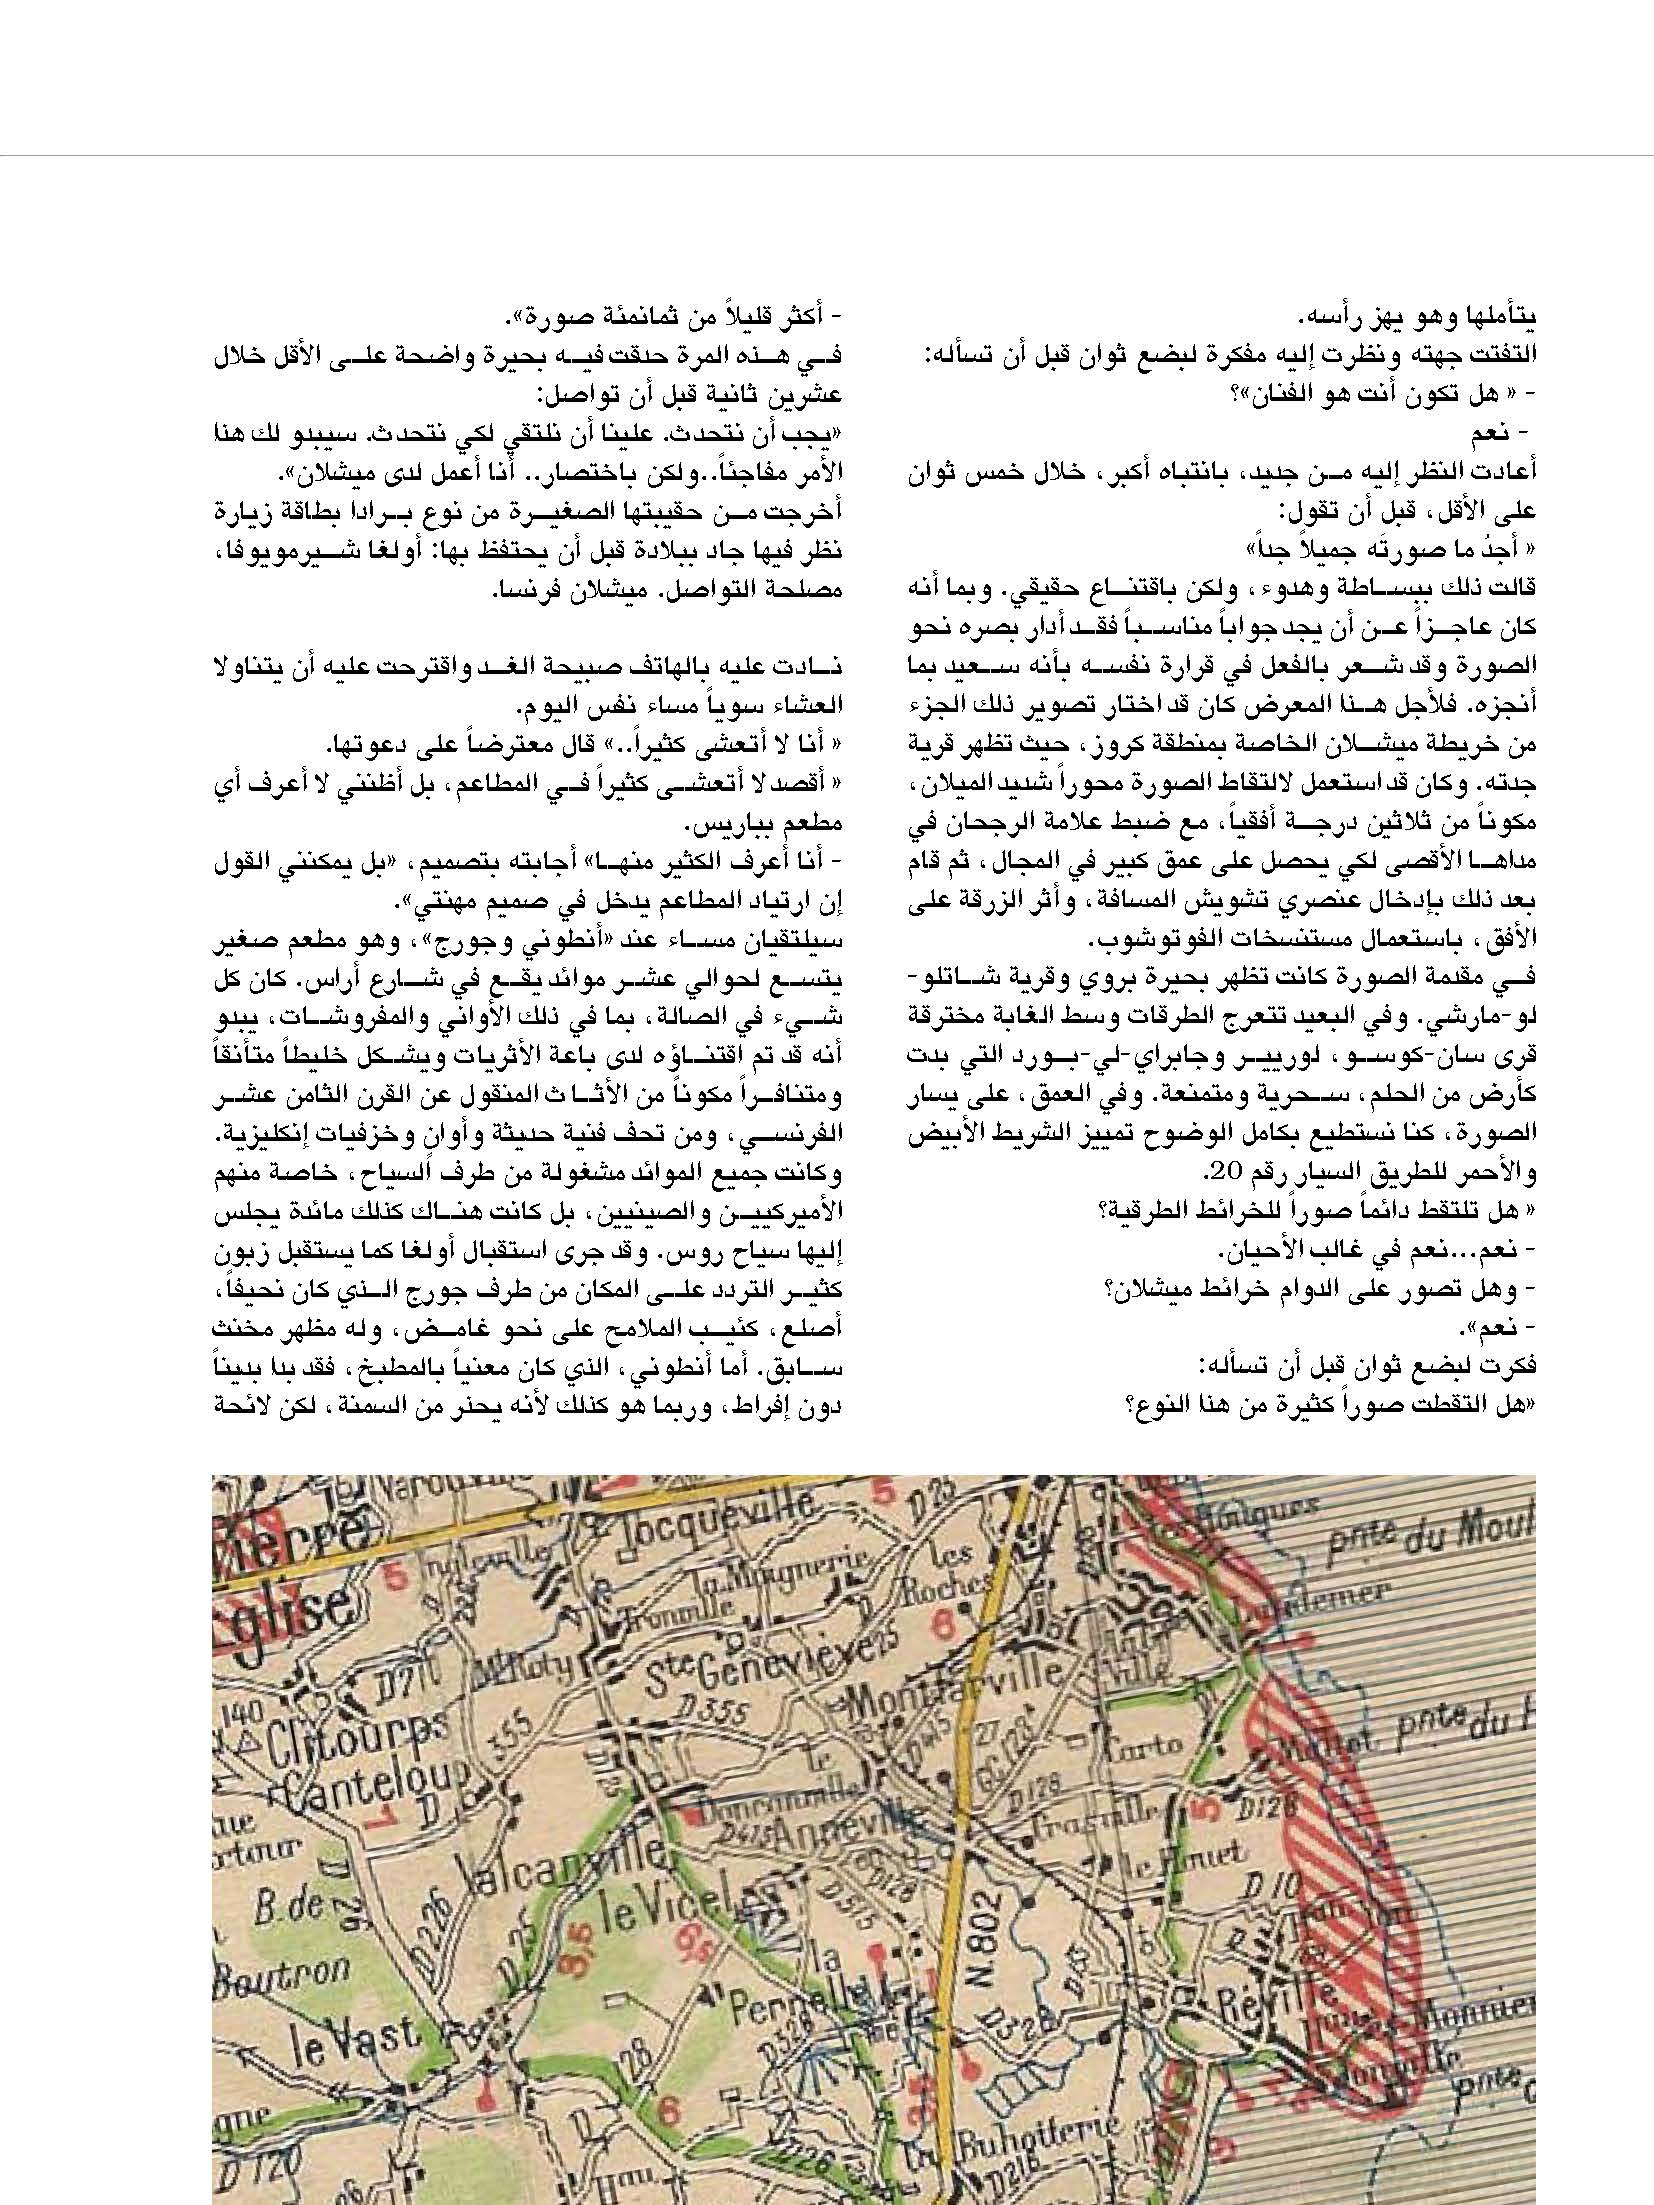 يتأملها وهو يهز رأسه.
التفتت جهته ونظرت إليه مفكرة لبضع ثوان قبل أن تسأله:
- « هل تكون أنت هو الفنان»؟
- نعم
أعادت النظر إليه مـن جديد، بانتباه أكبر، خلال خمس ثوان
على الأقل، قبل أن تقول:
« أجدُ ما صورتَه جميلاً جداً»
قالت ذلك ببساطة وهدوء، ولكن باقتناع حقيقي. وبما أنه
كان عاجزاً عن أن يجد جواباً مناسباً فقد أدار بصره نحو
الصورة وقد شعر بالفعل في قرارة نفسه بأنه سعيد بما
أنجزه. فلأجل هذا المعرض كان قد اختار تصوير ذلك الجزء
من خريطة ميشلان الخاصة بمنطقة كروز، حيث تظهر قرية
جدته. وكان قد استعمل لالتقاط الصورة محوراً شديد الميلان،
مكوناً من ثلاثين درجة أفقياً، مع ضبط علامة الرجحان في
مداها الأقصى لكي يحصل على عمق كبير في المجال، ثم قام
بعد ذلك بإدخال عنصري تشويش المسافة، وأثر الزرقة على
الأفق، باستعمال مستنسخات الفوتوشوب.
في مقدمة الصورة كانت تظهر بحيرة بروي وقرية شاتلو-
لو-مارشي. وفي البعيد تتعرج الطرقات وسط الغابة مخترقة
قرى سان-كوسو، لوريير وجابراي-لي-بورد التي بدت
كأرض من الحلم، سحرية ومتمنعة. وفي العمق، على يسار
الصورة، كنا نستطيع بكامل الوضوح تمييز الشريط الأبيض
والأحمر للطريق السيار رقم 20.
« هل تلتقط دائماً صوراً للخرائط الطرقية؟
- نعم...نعم في غالب الأحيان.
- وهل تصور على الدوام خرائط ميشلان؟
- نعم».
فكرت لبضع ثوان قبل أن تسأله:
«هل التقطت صوراً كثيرة من هذا النوع؟
- أكثر قليلاً من ثمانمئة صورة».
في هذه المرة حدقت فيه بحيرة واضحة على الأقل خلال
عشرين ثانية قبل أن تواصل:
«يجب أن نتحدث. علينا أن نلتقي لكي نتحدث. سيبدو لك هذا
الأمر مفاجئاً..ولكن باختصار.. أنا أعمل لدى ميشلان».
أخرجت من حقيبتها الصغيرة من نوع برادا بطاقة زيارة
نظر فيها جاد ببلادة قبل أن يحتفظ بها: أولغا شيرمويوفا،
مصلحة التواصل. ميشلان فرنسا.
نادت عليه بالهاتف صبيحة الغد واقترحت عليه أن يتناولا
العشاء سوياً مساء نفس اليوم.
« أنا لا أتعشى كثيراً..» قال معترضاً على دعوتها.
« أقصد لا أتعشى كثيراً في المطاعم، بل أظنني لا أعرف أي
مطعم بباريس.
- أنا أعرف الكثير منها» أجابته بتصميم، «بل يمكنني القول
إن ارتياد المطاعم يدخل في صميم مهنتي».
سيلتقيان مساء عند «أنطوني وجورج»، وهو مطعم صغير
يتسع لحوالي عشر موائد يقع في شارع أراس. كان كل
شيء في الصالة، بما في ذلك الأواني والمفروشات، يبدو
أنه قد تم اقتناؤه لدى باعة الأثريات ويشكل خليطاً متأنقاً
ومتنافراً مكوناً من الأثاث المنقول عن القرن الثامن عشر
الفرنسي، ومن تحف فنية حديثة وأوان وخزفيات إنكليزية.
وكانت جميع الموائد مشغولة من طرف السياح، خاصة منهم
الأميركيين والصينيين، بل كانت هناك كذلك مائدة يجلس
إليها سياح روس. وقد جرى استقبال أولغا كما يستقبل زبون
كثير التردد على المكان من طرف جورج الذي كان نحيفاً،
أصلع، كئيب الملامح على نحو غامض، وله مظهر مخنث
سابق. أما أنطوني، الذي كان معنياً بالمطبخ، فقد بدا بديناً
دون إفراط، وربما هو كذلك لأنه يحذر من السمنة، لكن لائحة
Tocqueville
5
D 25
pnte du Moul
ierre
Eglise
5
la Magnerie
les
Roches
6
Ste Geneviève
D 355
Montfarville
pnte du
140
Clitourps
355
Canteloup
Anneville
D 128
5
D 128
Valcanville
le Vicel
D 10
B. de
D 26
D 25
8,5
6,5
N. 802
Boutron
la
Pernelle
Réville
le Vast
D 328
28
6
D 120
D 126
D 216